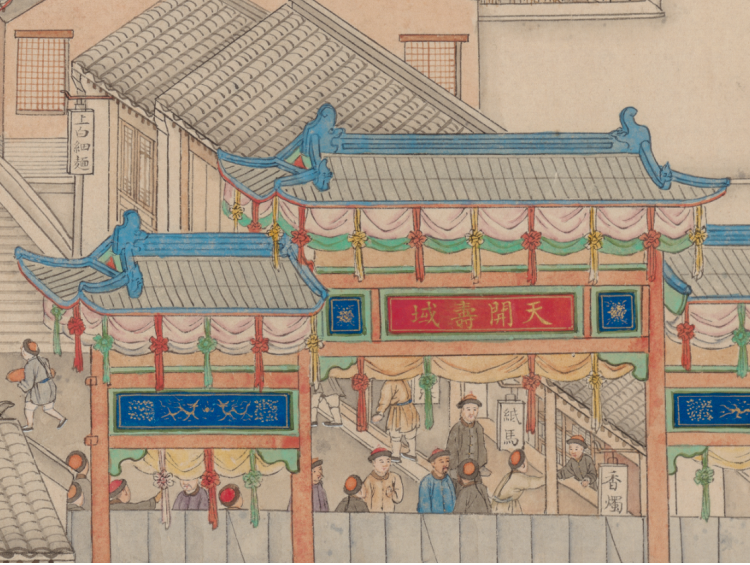 上白細麵
天開壽域
紙馬
香燭